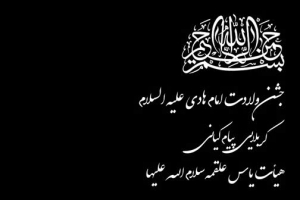 بسم الله الرحمن الرحیم
جشن ولادت امام هادی علیه السلام
کربلایی پیام کیانی
هیأت یاس علقمه سلام الله علیها